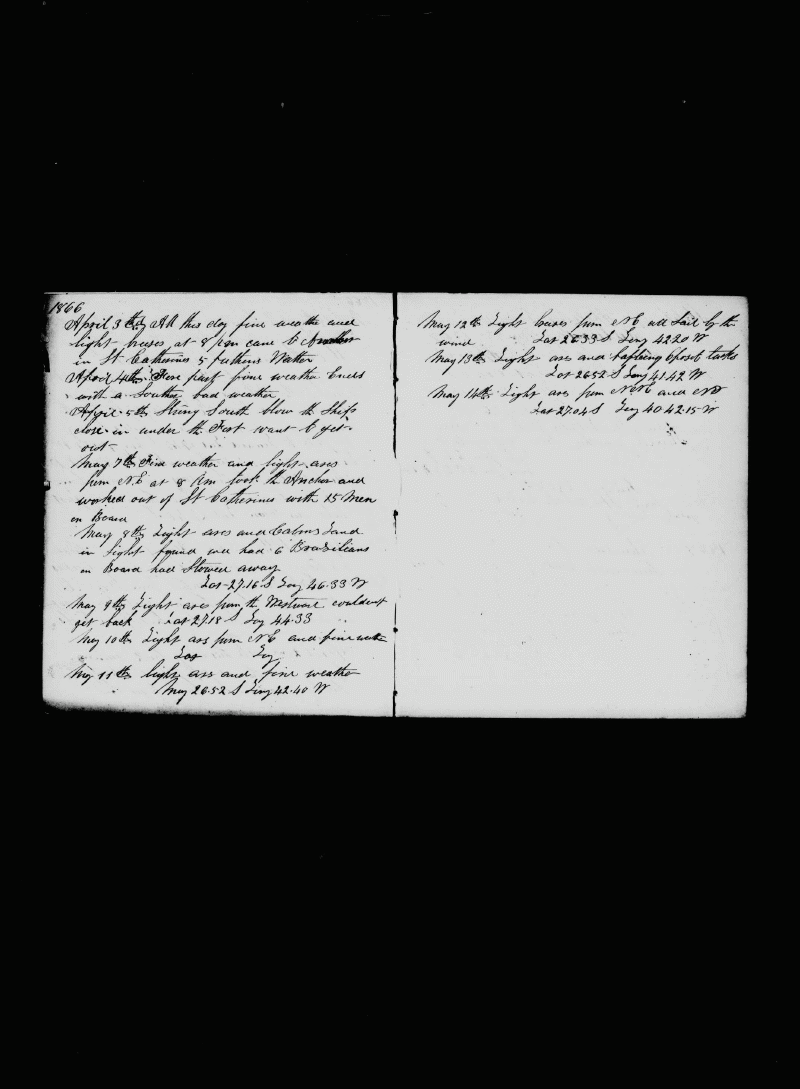 1866
April 3rd All this day fine weathe and
light breses at 8 pm came to
in St Catherines 5 fathens Watter
April 4th First part fine weather Ends
with a Souther bad weather
April 5th Strong South blow the Ship
close in under the Fort want to get
out
May 7th Fine weather and light ares
from N.E at 8 Am took the Anchor and
worked out of St Catherines with 15 Men
on Board
May 8th Light ares and Calms Land
in Sight found we had 6 Brazilians
on Board had Stowed away
Lat 27.16 S Long 46.33 W
May 9th Light ares from the Westward couldent
get back Lat 27.18 S Long 44.33
May 10th Light ares from NE and fine
Lat Long
May 11th light ares and fine weather
May 26.52 S Long 42.40 W
May 12th Light breses from NE all Sail by the
wind Lat 26.33 S Long 42.20 W
May 13th Light ares and tacks
Lat 26.52 S Long 41.42 W
May 14th Light ares from N.NE and
Lat 27.04 S Long 40 42.15 W